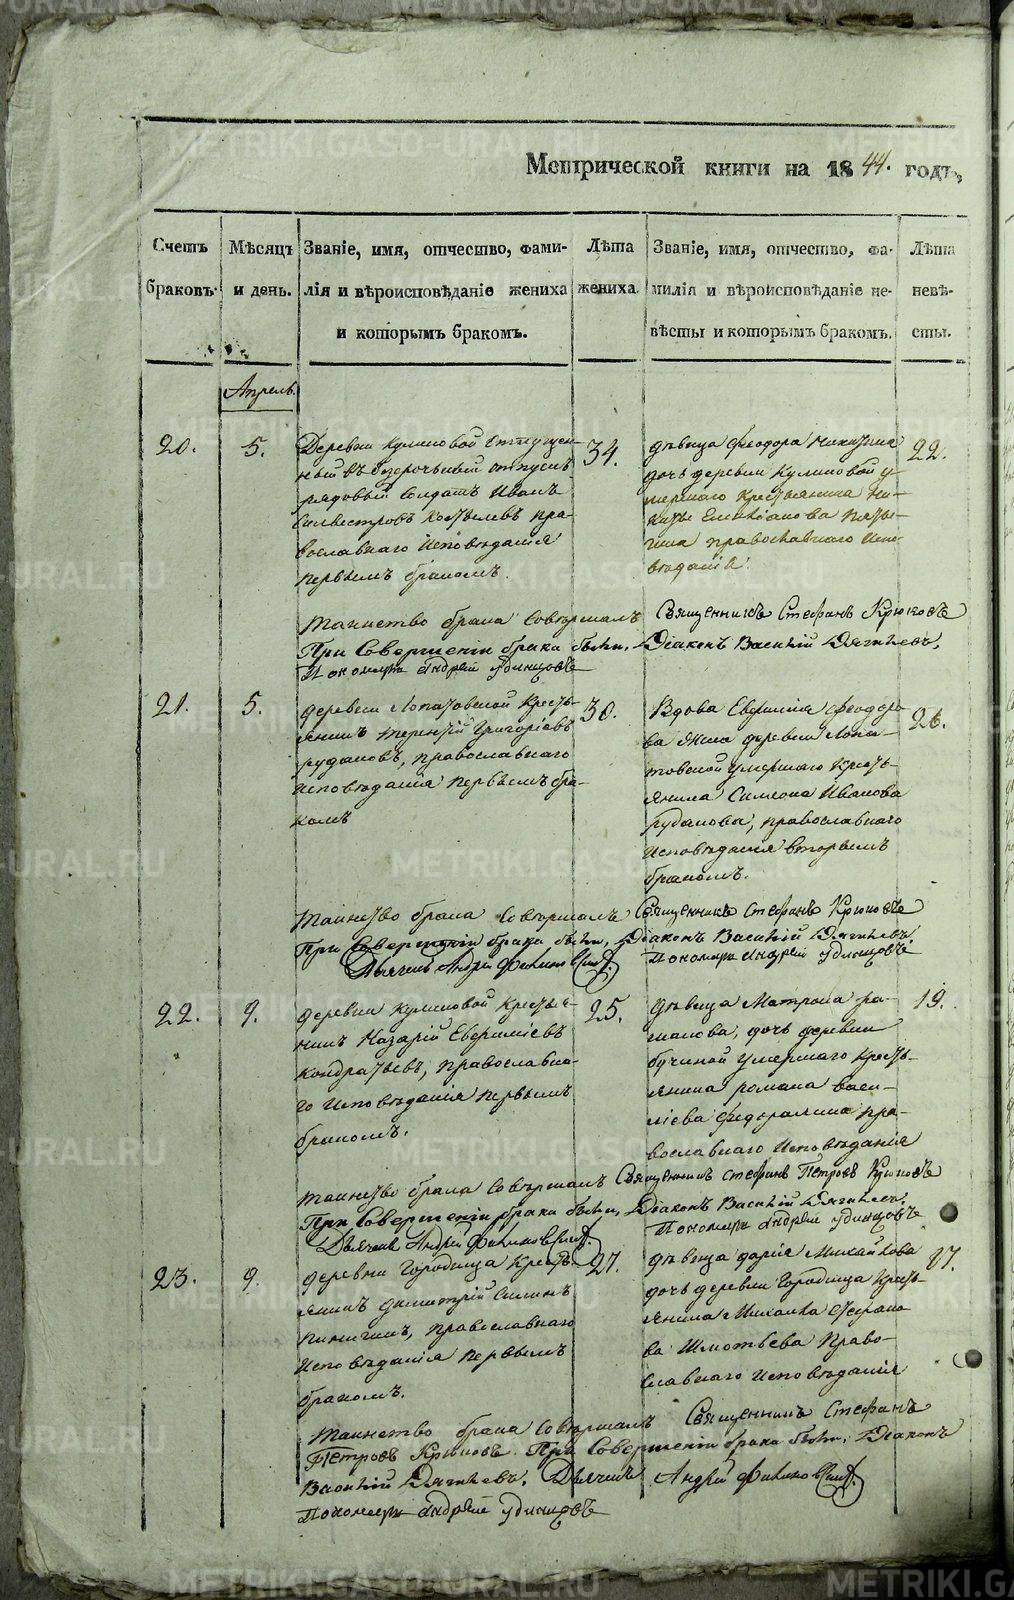 Метрической книги на 1844. годъ,
Счетъ браковъ.
Мѣсяцъ и день.
Званіе, имя, отчество, фами-
лія и вѣроисповѣданіе жениха
и которымъ бракомъ.
Лѣта жениха.
Званіе, имя, отчество, фа-
милія и вѣроисповѣданіе не-
вѣсты и которымъ бракомъ.
Лѣта невѣ-
сты.
Апрель.
20.
5.
Деревни Куликовой отпущен-
ный въ безсрочный отпускъ
рядовый Солдатъ Иванъ
Силвестровъ
пра-
вославнаго исповѣданія
первымъ бракомъ.
34.
дѣвица Феодора Никитина
дочь деревни Куликовой у-
мершаго Крестьянина Ни-
киты
православнаго испо-
вѣданія.
22.
Таинство брака совершалъ Священникъ Стефанъ Крюковъ
При Совершеніи брака были, Діаконъ Василій Дягилевъ,
Пономарь Андрей Удинцовъ
21.
5.
деревни Лопатовской Кресть-
янинъ Терентій Григоріевъ
Рудаковъ, православнаго
исповѣданія первымъ бра-
комъ
30.
Вдова Евфимія Феодоро-
ва жена деревни Лопа-
товской умершаго Кресть-
янина Симеона Иванова
Рудакова, православнаго
исповѣданія вторымъ
бракомъ.
26.
Таинство брака совершалъ Священникъ Стефанъ Крюковъ
При Совершеніи брака были, Діаконъ Василій Дягилевъ.
Дьячекъ Андрей
Пономарь Андрей Удинцовъ
22.
9.
деревни Куликовой Крестья-
нинъ Назарій Евфиміевъ
Кондратьевъ, православна-
го исповѣданія первымъ
бракомъ.
25.
дѣвица Матрона Ро-
манова, дочь деревни
Бучиной умершаго Кресть-
янина Романа Васи-
ліева
пра-
вославнаго исповѣданія
19.
Таинство брака совершалъ Священникъ Стефанъ Петровъ Крюковъ
При Совершеніи брака были, Діаконъ Василій Дягилевъ.
Дьячекъ Андрей
Пономарь Андрей Удинцовъ
23.
9.
деревни Городища Кресть-
янинъ Димитрій Силинъ
Пинигинъ, православнаго
исповѣданія первымъ
бракомъ.
27.
дѣвица Дарія Михайлова
дочь деревни Городища Кресть-
янина Михаила Стефано-
ва
право-
славнаго исповѣданія
Таинство брака совершалъ Священникъ Стефанъ
Петровъ Крюковъ. При Совершеніи брака были, Діаконъ
Василій Дягилевъ. Дьячекъ Андрей
Пономарь Андрей Удинцовъ
METRIKI.GASO-URAL.RU